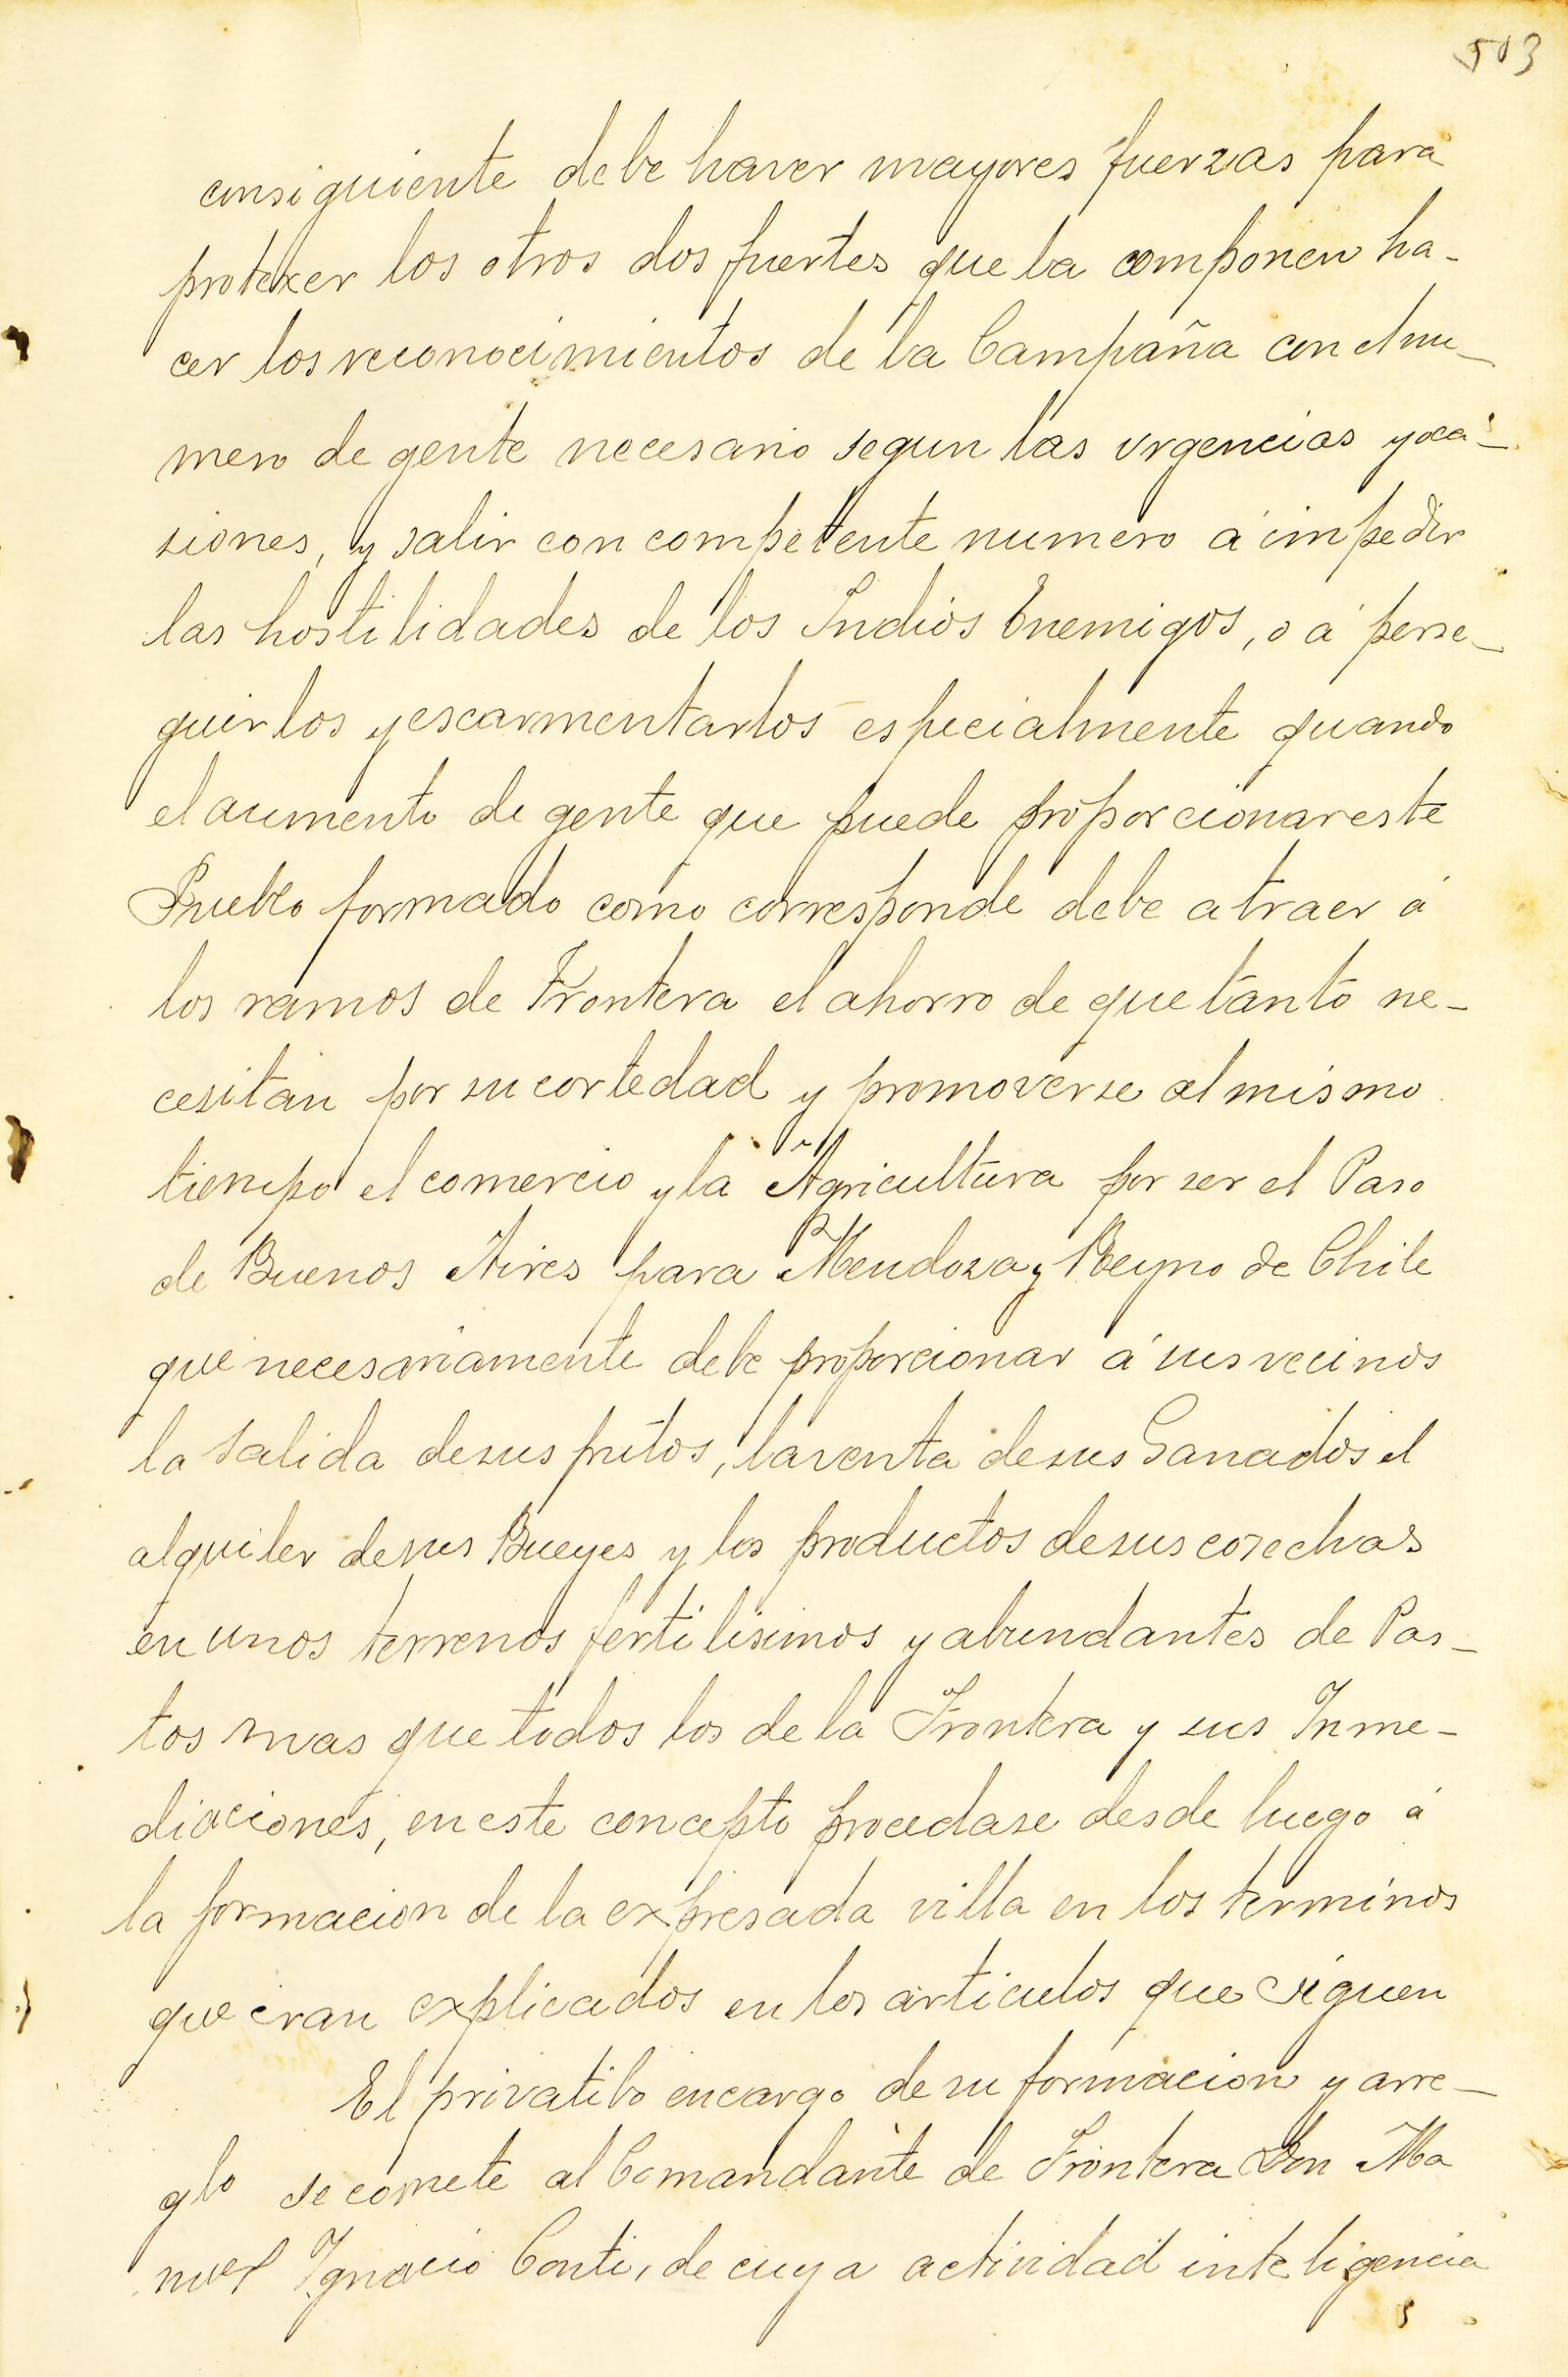 503
consiguiente debe haver mayores fuerzas para
protexer los otros dos fuertes que la componen ha-
cer los reconocimientos de la Campaña con el nu-
mero de gente necesario segun las urgencias y oca-
siones, y salir con competente numero á impedir
las hostilidades de los Indios Enemigos, o á perse-
guirlos y escarmentarlos especialmente quando
el aumento de gente que puede proporcionar este
Pueblo formado como corresponde debe atraer á
los ramos de Frontera el ahorro de que tanto ne-
cesitan por su cortedad y promoverse al mismo
tiempo el comercio y la Agricultura por ser el Paso
de Buenos Aires para Mendoza y Reyno de Chile
que necesariamente debe proporcionar á sus vecinos
la salida de sus frutos, la venta de sus Ganados el
alquiler de sus Bueyes y los productos de sus cosechas
en unos terrenos fertilisimos y abundantes de Pas-
tos mas que todos los de la Frontera y sus Inme-
diaciones, en este concepto procedase desde luego á
la formacion de la expresada villa en los terminos
que eran explicados en los articulos que siguen
El privatibo encargo de su formacion y arre-
glo se comete al Comandante de Frontera Don Ma
nuel Ignacio Conti, de cuya actividad inteligencia